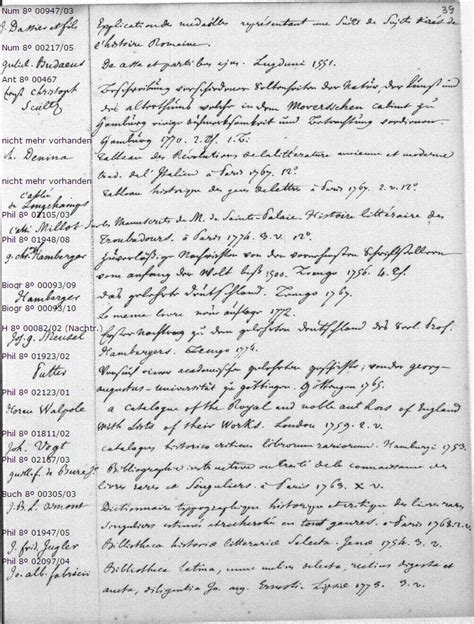 39
Num 8º 00947/03
J. Dassier et fils Explication des medailles representant une Suite de Sujets tirés de
l'histoire Romaine.
Num 8º 00217/05
Guliel. Budaeus De asse et partibus ejus. Lugduni 1551.
Ant 8º 00467
Ernst Christoph Beschreibung verschiedener Seltenheiten der Natur, der Kunst und
Scultz des alterthums welche in dem cabinet zu
Hamburg einige
Hamburg 1770. 2. 1. T.
nicht mehr vorhanden
Denina Tableau des Revolutions de la litterature ancienne et moderne
trad. de l'Italien à Paris 1767. 12º
nicht mehr vorhanden
Tableau historique des gens de lettres à Paris 1767. 2. v. 12º
l'abbé
de Longchamps
Phil 8º 02105/03
l'abbé Millot Sur les Manuscrits de M. de Sainte Palaie. Histoire littéraire des
Troubadours. à Paris 1774. 3. v. 12º
Phil 8º 01948/08
G. Chr. Hamberger Zuverlässige Nachrichten von den vornehmsten Schriftstellern
vom anfang der Welt biß 1500. Lemgo 1756. 4.
Biogr 8º 00093/09
Hamberger das gelehrte Deutschland. Lemgo 1767.
Biogr 8º 00093/10
Le meme livre neue auflage 1772.
H 8º 00082/02 (Nachtr.)
Joh. G. Meusel Erster Nachtrag zu dem gelehrten Deutschland des
Hambergers. Lemgo 1774.
Phil 8º 01923/02
Putter Versuch einer academischen gelehrten geschichte, von der georg-
augustus-universität zu göttingen. Göttingen 1765.
Phil 8º 02123/01
Horace Walpole a catalogue of the Royal and noble authors of England
With Lists of their Works. London 1759. 2. v.
Phil 8º 01811/02
Joh. Vogt catalogus historico criticus librorum rariorum. Hamburgi 1753.
Phil 8º 02167/03
de Bure Bibliographie instructive ou traité de la connaissance des
livres rares et Singuliers. à Paris 1763. X v.
Buch 8º 00305/03
J. B. L. Osmont Dictionnaire typographique historique et critique des livres rares
Singuliers estimés et recherchés en tous genres. à Paris 1768. 2. v.
Phil 8º 01947/05
J. Frid. Jugler Bibliotheca historiae litterariae Selecta. Jenae 1754. 3. v.
Phil 8º 02097/04
Jo. alb. fabricii Bibliotheca latina, nunc melius delecta, rectius digesta et
aucta, diligentia Jo. aug. Ernesti. Lipsiae 1773. 3. v.